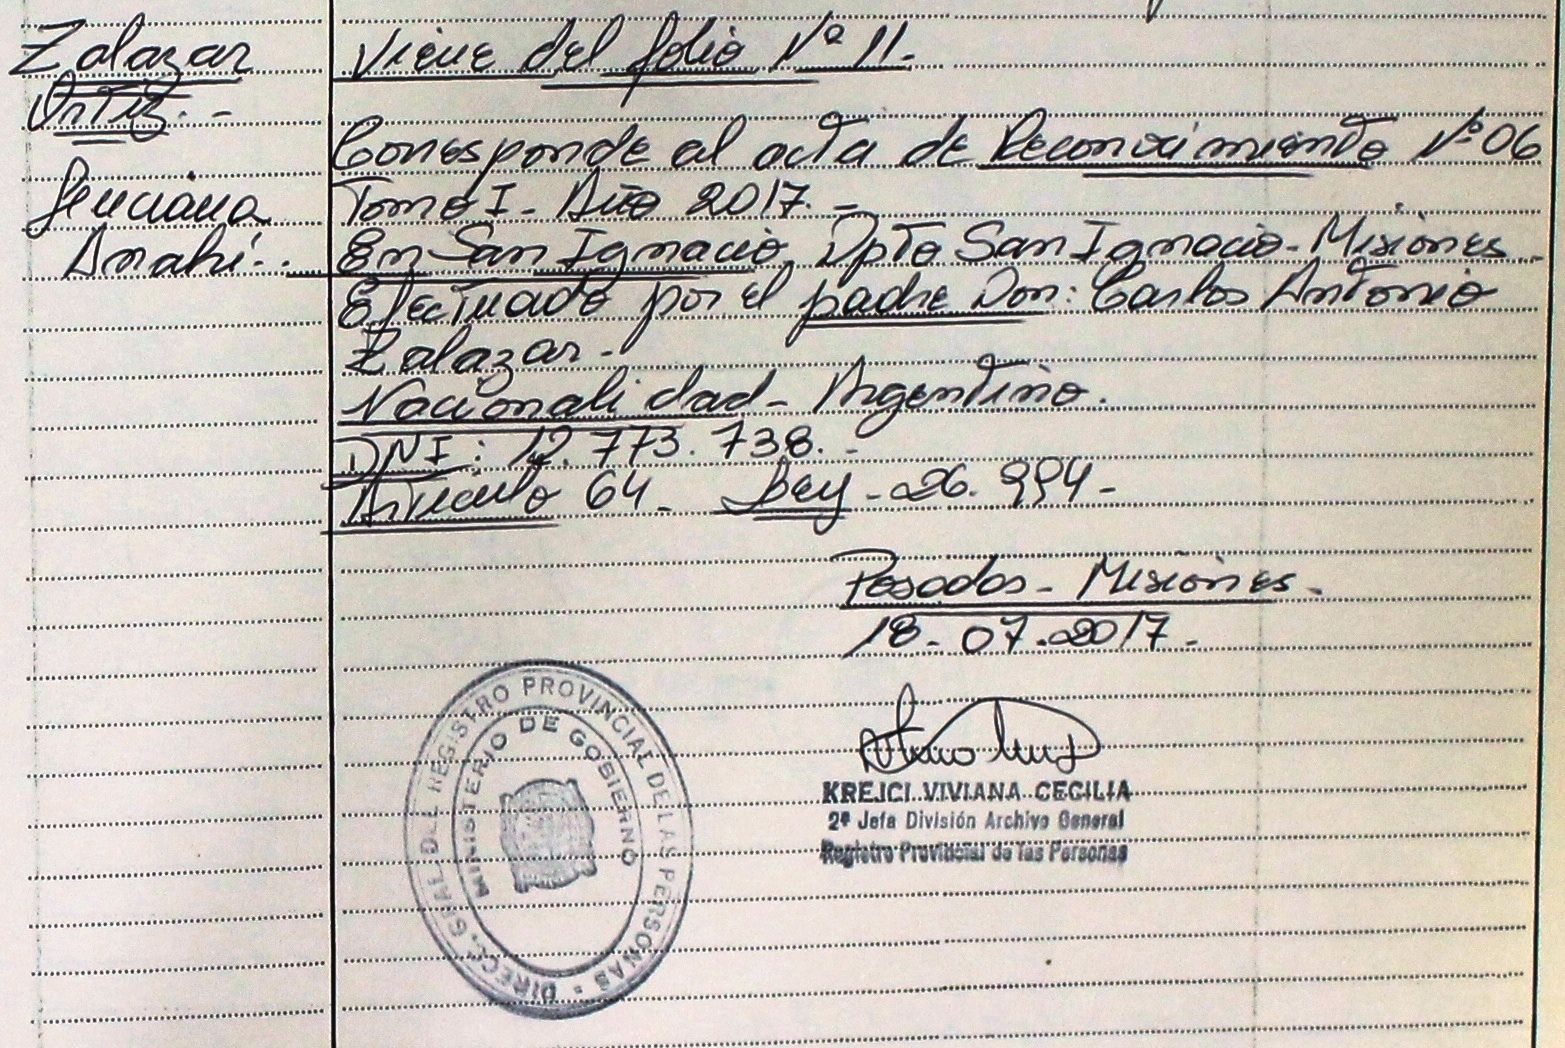 Zalazar
Ortiz. -
Luciana
Anahí. -
Viene del folio Nº 11.
Corresponde al acta de Reconocimiento Nº 06
Tomo I - Año 2017. -
En San Ignacio, Dpto San Ignacio - Misiones -
Efectuado por el padre Don: Carlos Antonio
Zalazar -
Nacionalidad - Argentino.
DNI: 12.773.738. -
Artículo 64 - Ley - 26.994 -
Posadas - Misiones -
18 - 07 - 2017 -
DIRECC. GRAL DEL REGISTRO PROVINCIAL DE LAS PERSONAS
MINISTERIO DE GOBIERNO
KREJCI VIVIANA CECILIA
2ª Jefa División Archivo General
Registro Provincial de las Personas